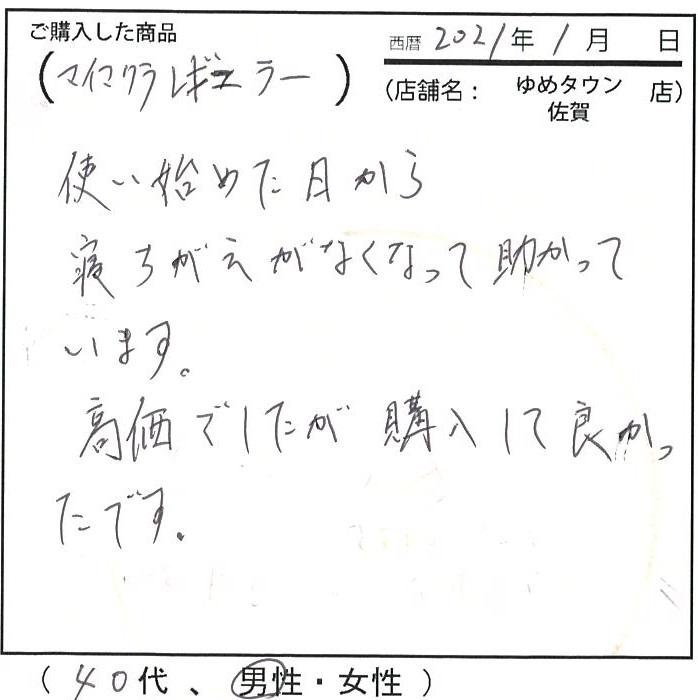 ご購入した商品
西暦 2021年 1月 日
(マイマクラレギュラー)
(店舗名: ゆめタウン 佐賀 店)
使い始めた日から
寝ちがえがなくなって助かって
います。
高価でしたが購入して良かっ
たです。
(40代、男性・女性)